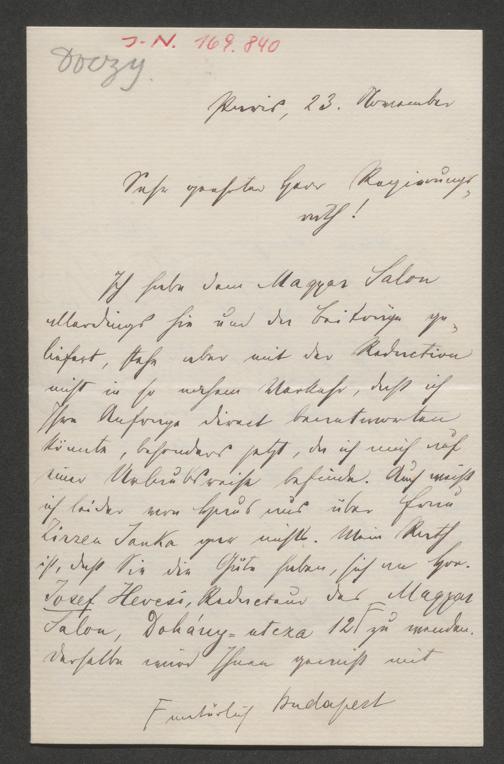 J. N. 169.840
Doczy.
Paris, 23. November
Sehr geehrter Herr Regierungs-
rath!
Ich habe dem Magyar Salon
allerdings hie und da Beiträge ge-
liefert, stehe aber mit der Redaction
nicht in so nahem Verkehr, daß ich
Ihre Anfrage direct beantworten
könnte, besonders jetzt, da ich mich auf
einer Urlaubsreise befinde. Auch weiß
ich leider von Haus aus über Frau
Zirzen Janka gar nichts. Mein Rath
ist, daß Sie die Güte haben, sich an Hrn.
Josef Hevesi, Redacteur des Magyar
Salon, Dohány-utcza 12 Γ zu wenden.
Derselbe wird Ihnen gewiß mit
Γ natürlich Budapest